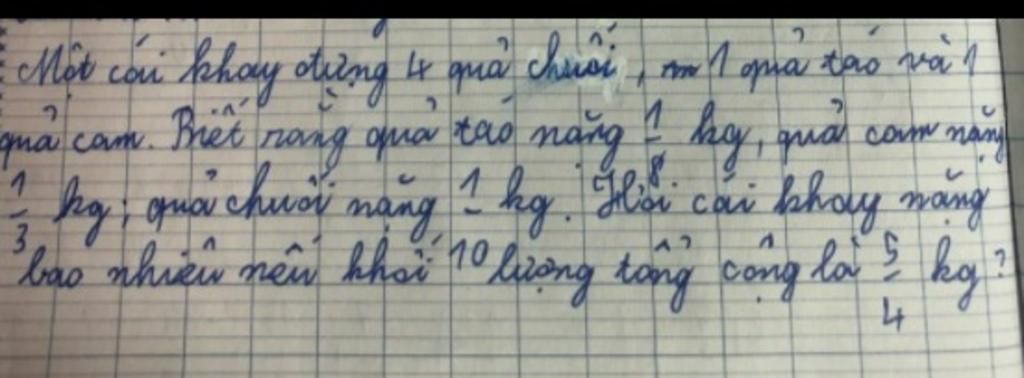 Một cái khay đựng 4 quả chuối, 1 quả táo và 1
quả cam. Biết rằng quả táo nặng 1/8 kg, quả cam nặng
1/3 kg; quả chuối nặng 1/10 kg. Hỏi cái khay nặng
bao nhiêu nếu khối lượng tổng cộng là 5/4 kg?